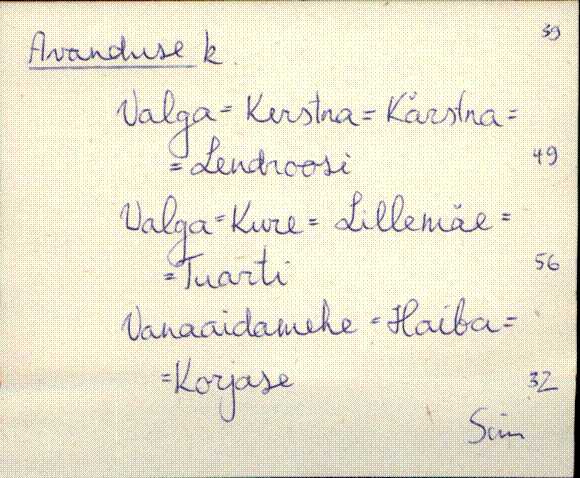 39
Avanduse k.
Valga = Kerstna = Kärstna =
= Lendroosi 49
Valga = Kure = Lillemäe =
= Tuarti 56
Vanaaidamehe = Haiba =
= Korjase 32